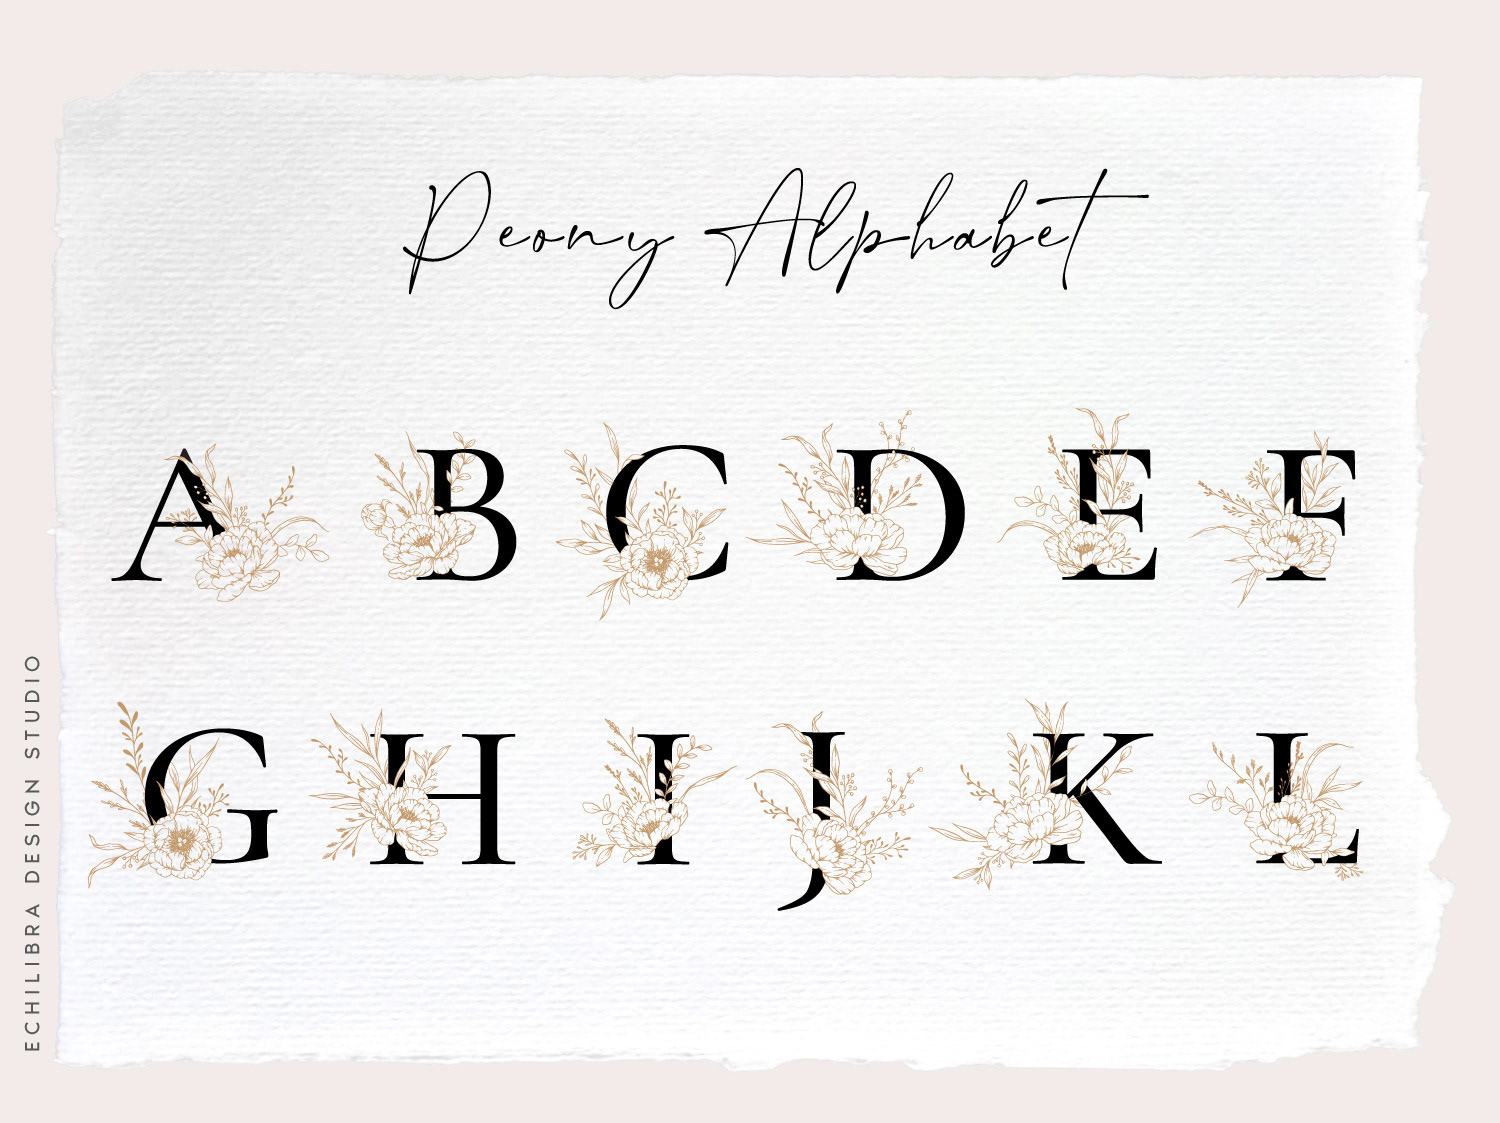 Peony Alphabet
A B C D E F
G H I J K L
ECHILIBRA DESIGN STUDIO